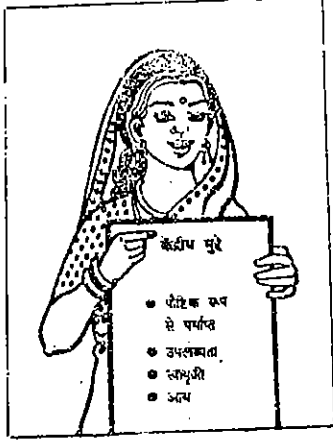 केंद्रीय मुद्दे
● पौष्टिक रूप
से पर्याप्त
● उपलब्धता
● आय